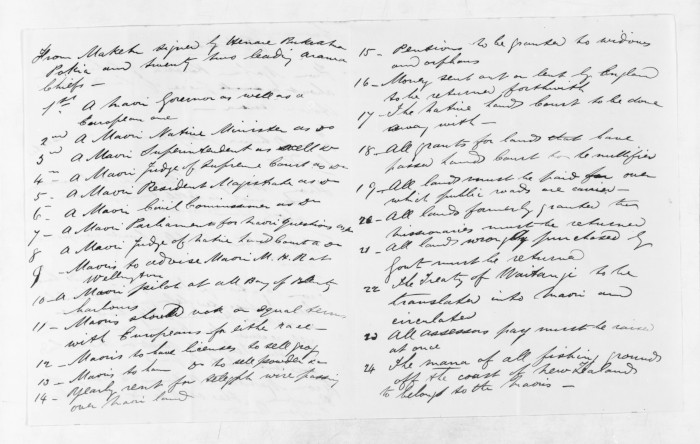 From Maketu signed by Henare
Pokia and twenty two leading Arawa
Chiefs —
1st A Maori Governor as well as a
European one
2nd A Maori Native Minister as do
3rd A Maori Superintendent as well do
4 — A Maori Judge of Supreme Court as do
5 — A Maori Resident Magistrate as do
6 — A Maori Civil Commissioner as do
7 — A Maori Parliament for Maori questions
8 A Maori Judge of Native Land Court a do
9 — Maoris to advise Maori M.H.R at
Wellington
10 — A Maori pilot at all Bay of Plenty
harbours
11 — Maoris should vote on equal terms
with Europeans for either race —
12 — Maoris to have licenses to sell grog
13 — Maoris to have do to sell powder
14 — Yearly rent for telegph wire passing
over Maori land
15 — Pensions to be granted to widows
and orphans
16 — Money sent out or lent by England
to be returned forthwith
17 — The Native Lands Court to be done
away with —
18 — All grants for lands that have
passed Land Court to be
19 — All land must be paid for over
which public roads are carried —
20 — All lands formerly granted to
missionaries must be returned
21 — All lands wrongly purchased by
Govt must be returned
22 The Treaty of Waitangi to be
translated into Maori and
circulated
23 All assessors pay must be raised
at once
24 The mana of all fishing grounds
off the coast of New Zealand
to belong to the Maoris —